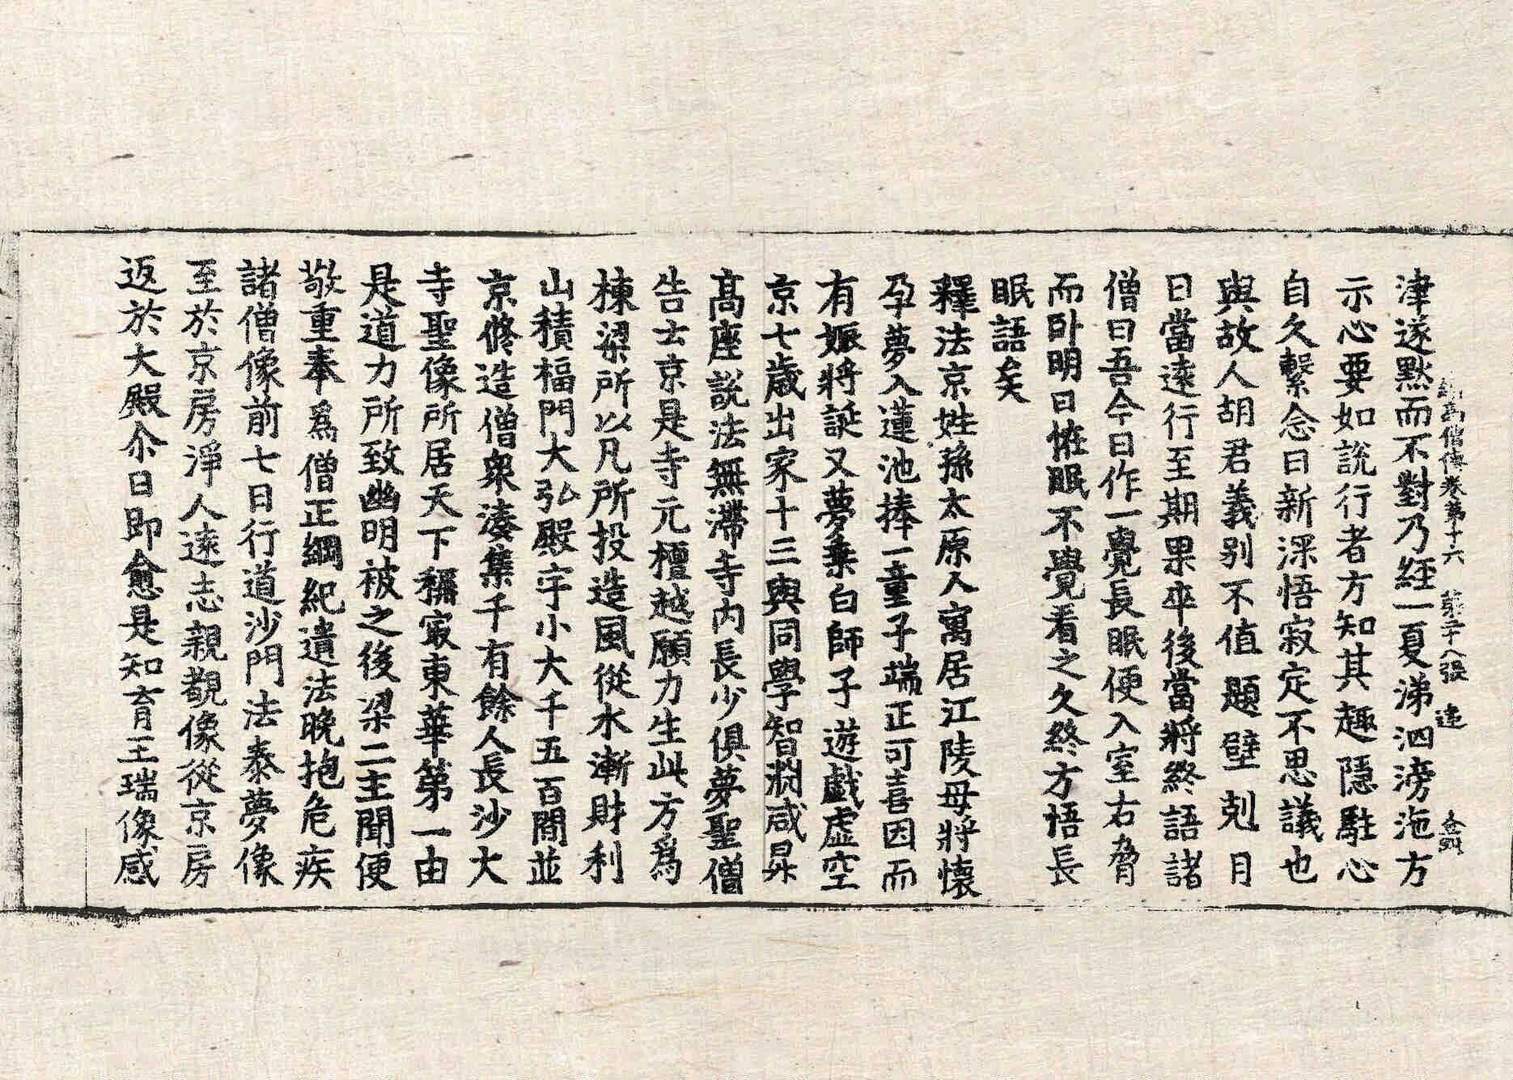 津遂默而不對乃經一夏涕泗滂沲方
續高僧傳卷第十六　第二十八張　逵
示心要如說行者方知其趣隱駐心
自久繫念日新深悟寂定不思議也
與故人胡君義別不值題壁剋月
日當遠行至期果卒後當將終語諸
僧曰吾今日作一覺長眠便入室右脅
而卧明日恠眠不覺看之久終方悟長
眠語矣
釋法京姓孫太原人寓居江陵母將懷
孕夢入蓮池捧一童子端正可喜因而
有娠將誕又夢乗白師子遊戲虛空
京七歲出家十三與同學智淵咸昇
髙座說法無滯寺內長少俱夢聖僧
告云京是寺元檀越願力生此方爲
棟梁所以凡所投造風從水漸財利
山積福門大弘殿宇小大千五百間並
京修造僧衆湊集千有餘人長沙大
寺聖像所居天下稱㝡東華第一由
是道力所致幽明被之後梁二主聞便
敬重奉爲僧正綱紀遺法晚抱危疾
諸僧像前七日行道沙門法泰夢像
至於京房淨人遠志親觀像從京房
返於大殿尒日即愈是知育王瑞像感